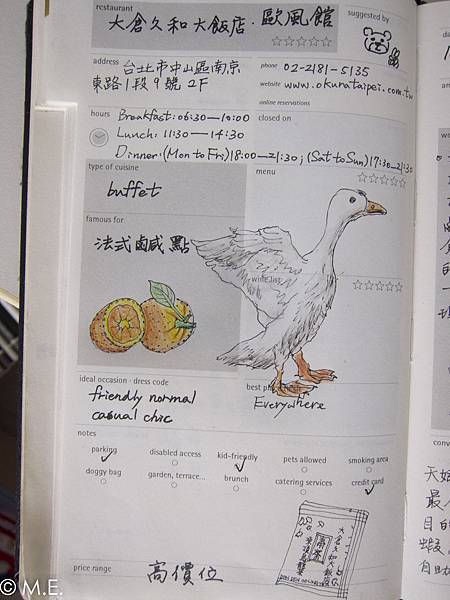 restaurant
大倉久和大飯店·歐風館
suggested by
address 台北市中山區南京
東路1段9號 2F
phone 02-2181-5135
website www.okurataipei.com.tw
online reservations
hours Breakfast: 06:30—10:00
Lunch: 11:30—14:30
Dinner: (Mon to Fri) 18:00—21:30; (Sat to Sun) 17:30-21:30
closed on
type of cuisine
buffet
menu
famous for
法式鹹點
wine list
ideal occasion · dress code
friendly normal
casual chic
best
Everywhere
notes
parking
disabled access
kid-friendly
pets allowed
smoking area
doggy bag
garden, terrace...
brunch
catering services
credit card
大倉久和大飯店
price range
高價位
© M.E.
天
最
目的
蝦
自助